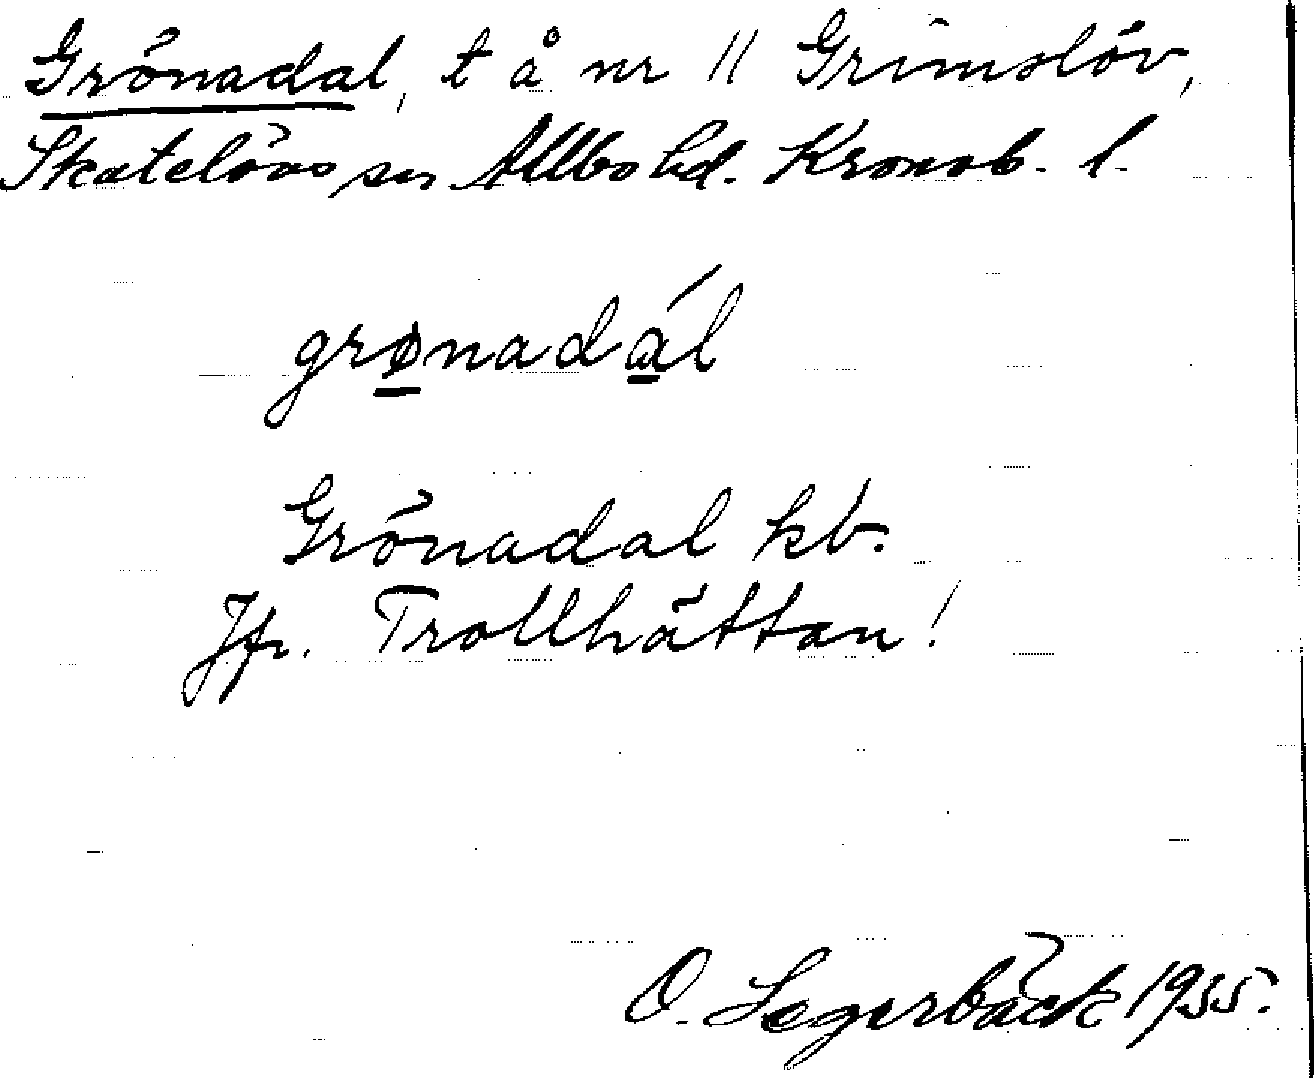 Grönadal, t å nr 11 Grimslöv,
Skatelövs sn Allbo hd. Kronob. l.
grønadál
Grönadal kb.
Jfr. Trollhättan!
O. Segerbäck 1955.